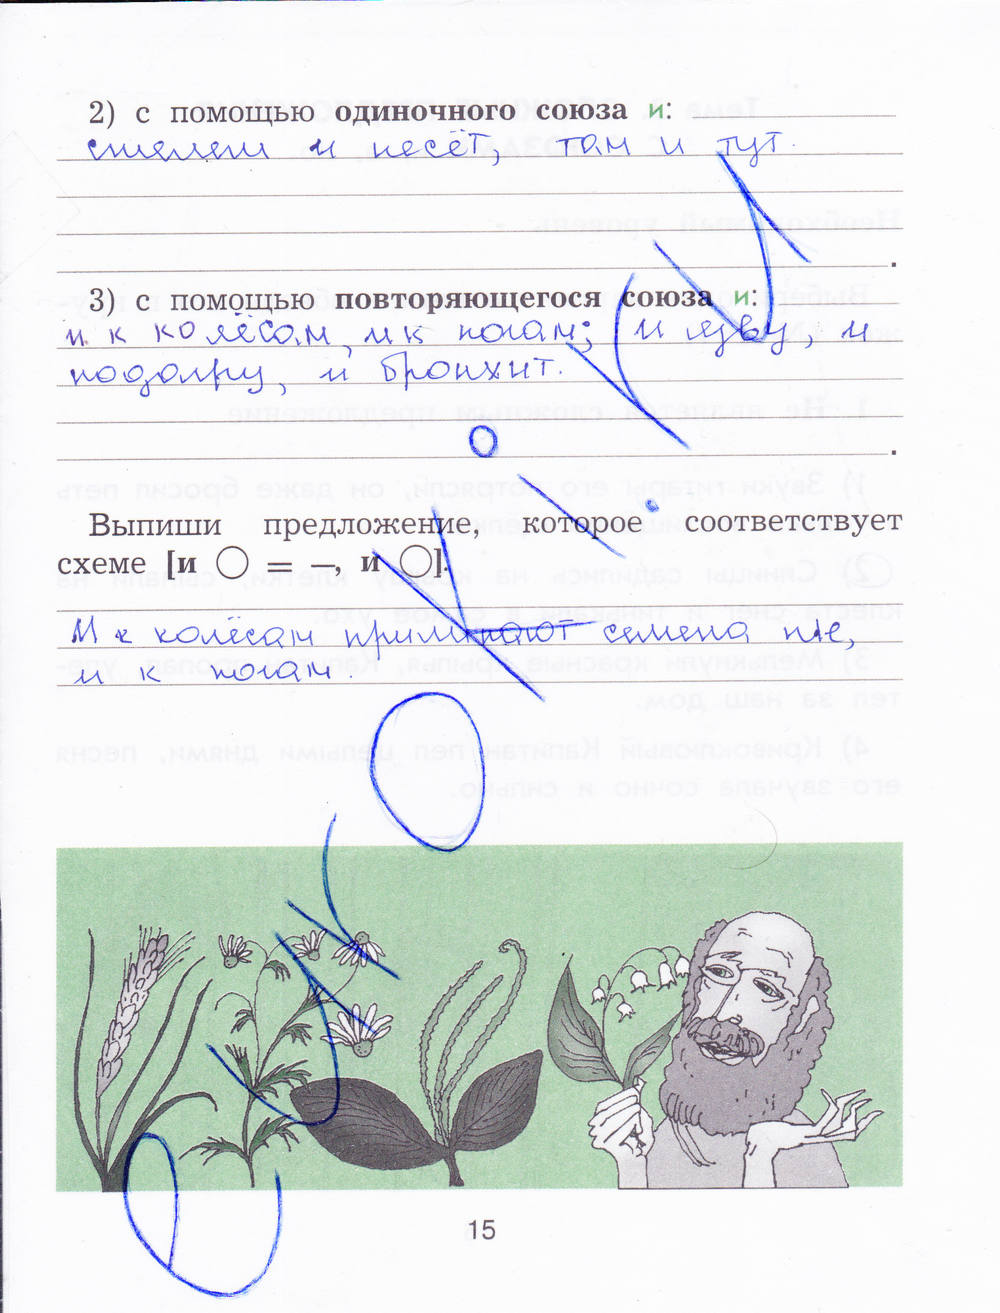 2) с помощью одиночного союза и:
стелет и несёт, там и тут.
3) с помощью повторяющегося союза и:
и к колёсам, и к ногам; и язву, и
подагру, и бронхит.
Выпиши предложение, которое соответствует
схеме [и ◯ = –, и ◯].
И к колёсам прилипают семена
и к ногам.
15